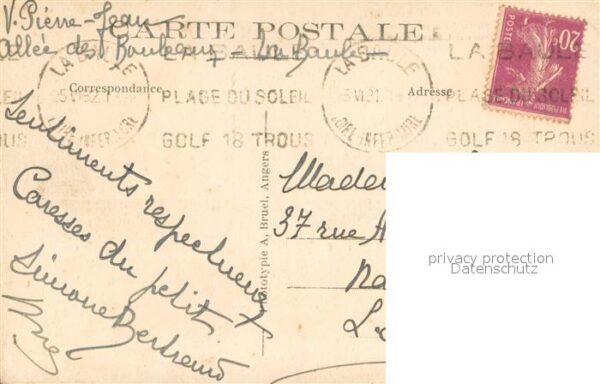 V. Pierre-Jean
CARTE POSTALE
Allée des Bouleaux - La Baule -
LA BAULE
LA BAULE
20c
POSTES
Correspondance
Adresse
PLAGE DU SOLEIL
PLAGE DU SOLEIL
LOIRE INFERIEURE
GOLF 18 TROUS
GOLF 18 TROUS
Sentiments respectueux
Caresses du petit
Simone Bertrand
Phototypie A. Bruel, Angers
Madem
37 rue
Na
L
privacy protection
Datenschutz